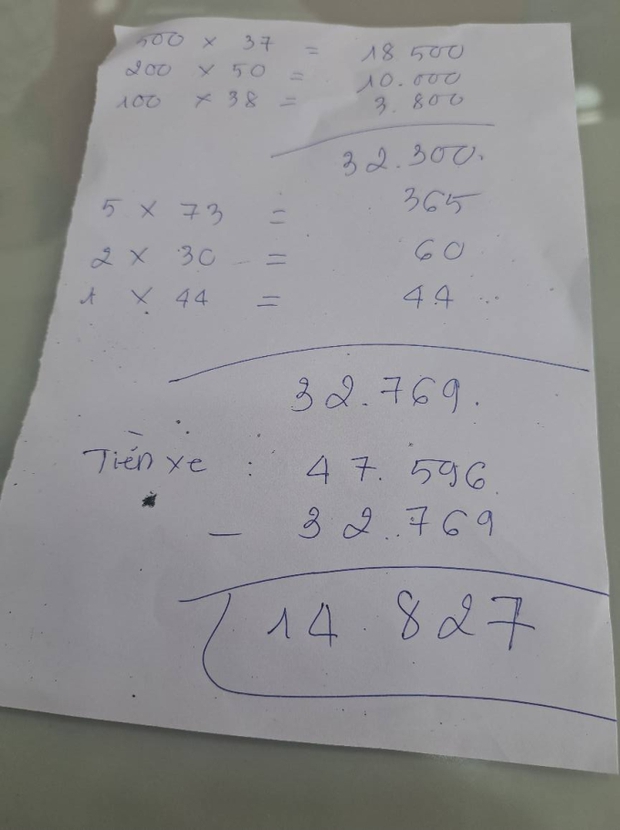 500 × 37 = 18.500
200 × 50 = 10.000
100 × 38 = 3.800
32.300.
5 × 73 = 365
2 × 30 = 60
1 × 44 = 44
32.769.
Tiền xe : 47.596
- 32.769
14.827